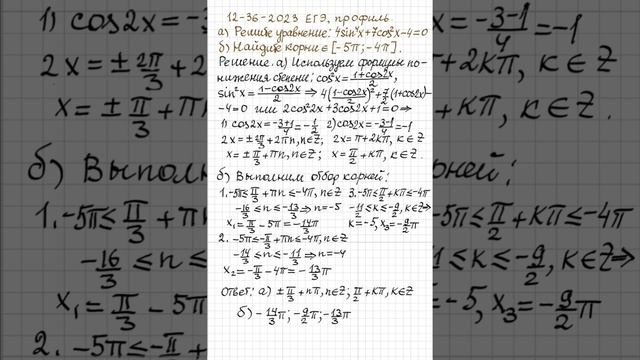 12-36-2023 ЕГЭ. профиль.
а) Решите уравнение: 4sin⁴x+7cos²x-4=0
б) Найдите корни ∈ [-5π; -4π].
Решение. а) Используем формулы по-
нижения степени: cos²x = (1+cos2x)/2,
sin²x = (1-cos2x)/2 ⇒ 4((1-cos2x)/2)²+7/2(1+cos2x)-
-4=0 или 2cos²2x+3cos2x+1=0 ⇒
1) cos2x = (-3+1)/4 = -1/2 2) cos2x = (-3-1)/4 = -1
2x = ± 2π/3 + 2πn, n∈Z; 2x = π+2kπ, k∈Z
x = ± π/3 + πn, n∈Z; x = π/2 + kπ, k∈Z.
б) Выполним отбор корней:
1. -5π ≤ π/3 + πn ≤ -4π, n∈Z 3. -5π ≤ π/2 + kπ ≤ -4π
-16/3 ≤ n ≤ -13/3 ⇒ n = -5 -11/2 ≤ k ≤ -9/2, k∈Z ⇒
x₁ = π/3 - 5π = -14π/3 k = -5, x₃ = -9/2 π
2. -5π ≤ -π/3 + πn ≤ -4π, n∈Z
-14/3 ≤ n ≤ -11/3 ⇒ n = -4
x₂ = -π/3 - 4π = -13/3 π
Ответ: а) ± π/3 + πn, n∈Z; π/2 + kπ, k∈Z
б) -14/3 π; -9/2 π; -13/3 π